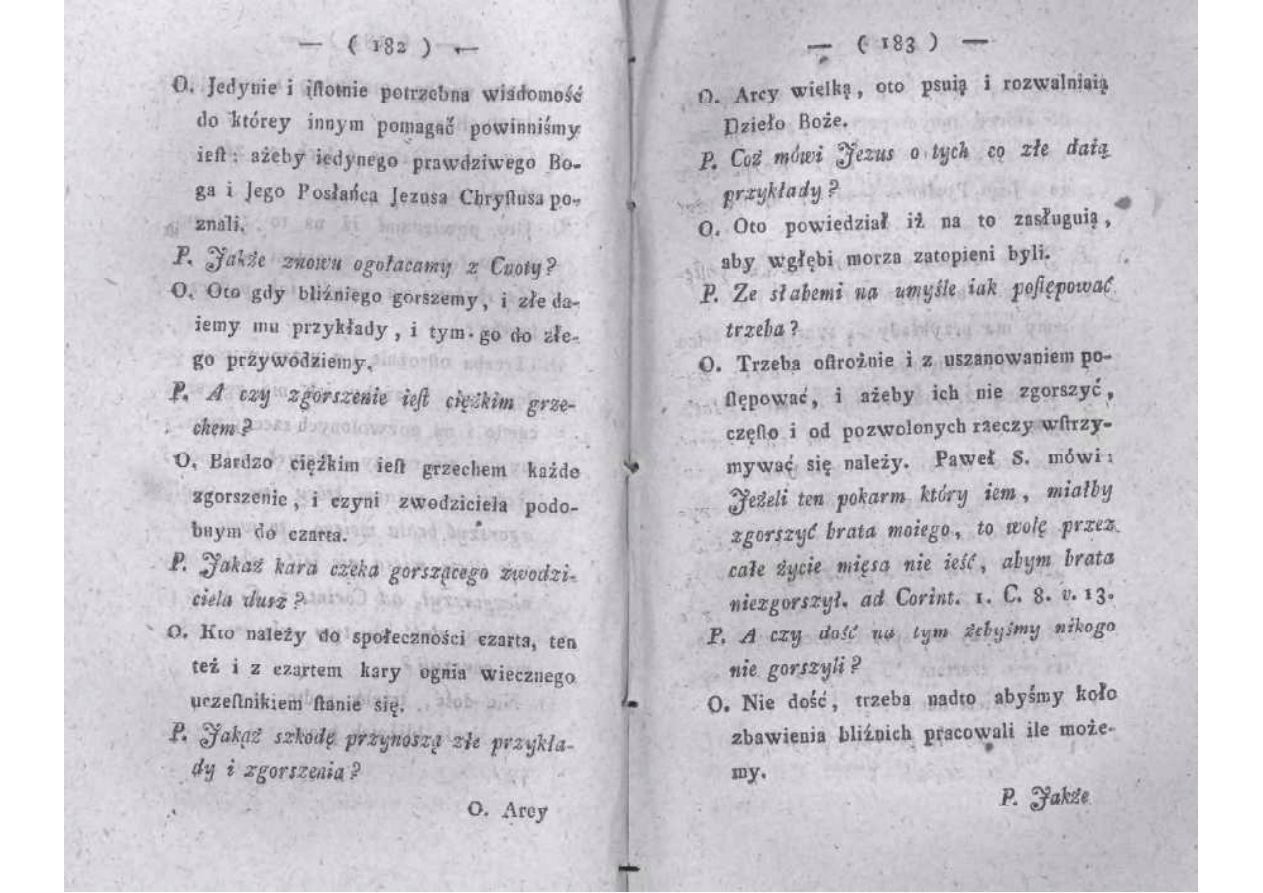 — ( 182 ) —
O. Jedynie i iſtotnie potrzebna wiadomość
do którey innym pomagać powinniśmy
ieſt : ażeby iedynego prawdziwego Bo-
ga i Jego Posłańca Jezusa Chryſtusa po-
znali.
P. Jakże znowu ogołacamy z Cnoty?
O. Oto gdy bliźniego gorszemy, i złe da-
iemy mu przykłady, i tym go do złe-
go przywodziemy.
P. A czy zgorszenie ieſt ciężkim grze-
chem?
O. Bardzo ciężkim ieſt grzechem każde
zgorszenie, i czyni zwodziciela podo-
bnym do czarta.
P. Jakaż kara czeka gorszącego zwodzi-
ciela dusz?
O. Kto należy do społeczności czarta, ten
też i z czartem kary ognia wiecznego
uczeſtnikiem ſtanie się.
P. Jakąż szkodę przynoszą złe przykła-
dy i zgorszenia?
O. Arcy
— ( 183 ) —
O. Arcy wielką, oto psuią i rozwalniaią
Dzieło Boże.
P. Coż mówi Jezus o tych co złe daią
przykłady?
O. Oto powiedział iż na to zasługuią,
aby wgłębi morza zatopieni byli.
P. Ze słabemi na umyśle iak poſtępować
trzeba?
O. Trzeba oſtrożnie i z uszanowaniem po-
ſtępować, i ażeby ich nie zgorszyć,
częſto i od pozwolonych rzeczy wſtrzy-
mywać się należy. Paweł S. mówi:
Jeżeli ten pokarm który iem, miałby
zgorszyć brata moiego, to wolę przez
całe życie mięsa nie ieść, abym brata
niezgorszył. ad Corint. 1. C. 8. v. 13.
P. A czy dość na tym żebyśmy nikogo
nie gorszyli?
O. Nie dość, trzeba nadto abyśmy koło
zbawienia bliźnich pracowali ile może-
my.
P. Jakże